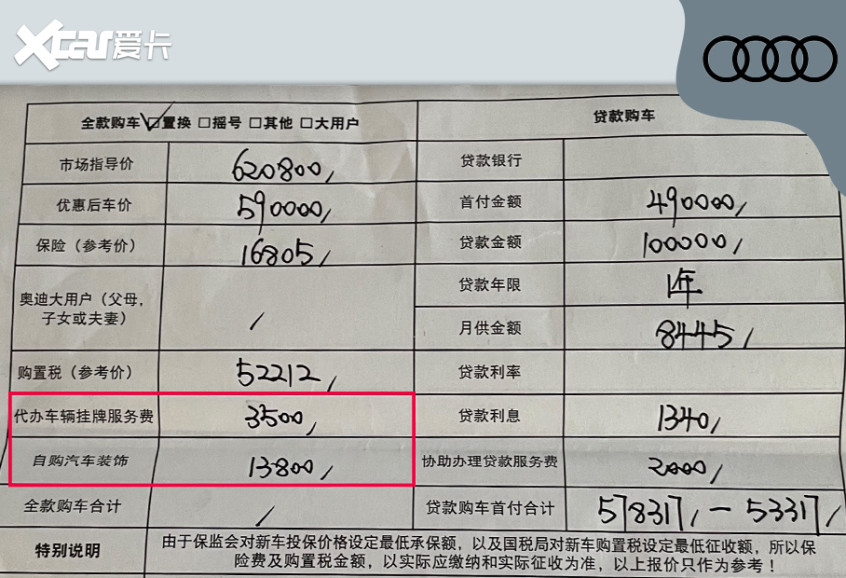 Xcar爱卡
全款购车 ☑置换 □摇号 □其他 □大用户 贷款购车
市场指导价 620800, 贷款银行
优惠后车价 590000, 首付金额 490000,
保险（参考价） 16805, 贷款金额 100000,
奥迪大用户（父母, 贷款年限 1年
子女或夫妻） / 月供金额 8445,
购置税（参考价） 52212, 贷款利率
代办车辆挂牌服务费 3500, 贷款利息 1340,
自购汽车装饰 13800, 协助办理贷款服务费 2000,
全款购车合计 / 贷款购车首付合计 578317, - 53317,
特别说明 由于保监会对新车投保价格设定最低承保额，以及国税局对新车购置税设定最低征收额，所以保
险费及购置税金额，以实际应缴纳和实际征收为准，以上报价只作为参考！